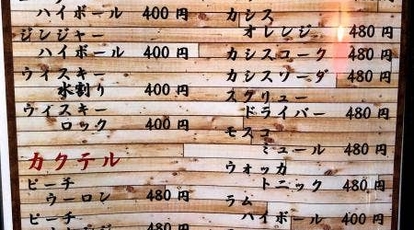 ハイボール 400円
ジンジャー
ハイボール 400円
ウイスキー
水割り 400円
ウイスキー
ロック 400円
カクテル
ピーチ
ウーロン 480円
ピーチ
カシス
オレンジ 480円
カシスコーク 480円
カシスソーダ 480円
スクリュー
ドライバー 480円
モスコ
ミュール 480円
ウォッカ
トニック 480円
ラム
ハイボール 400円